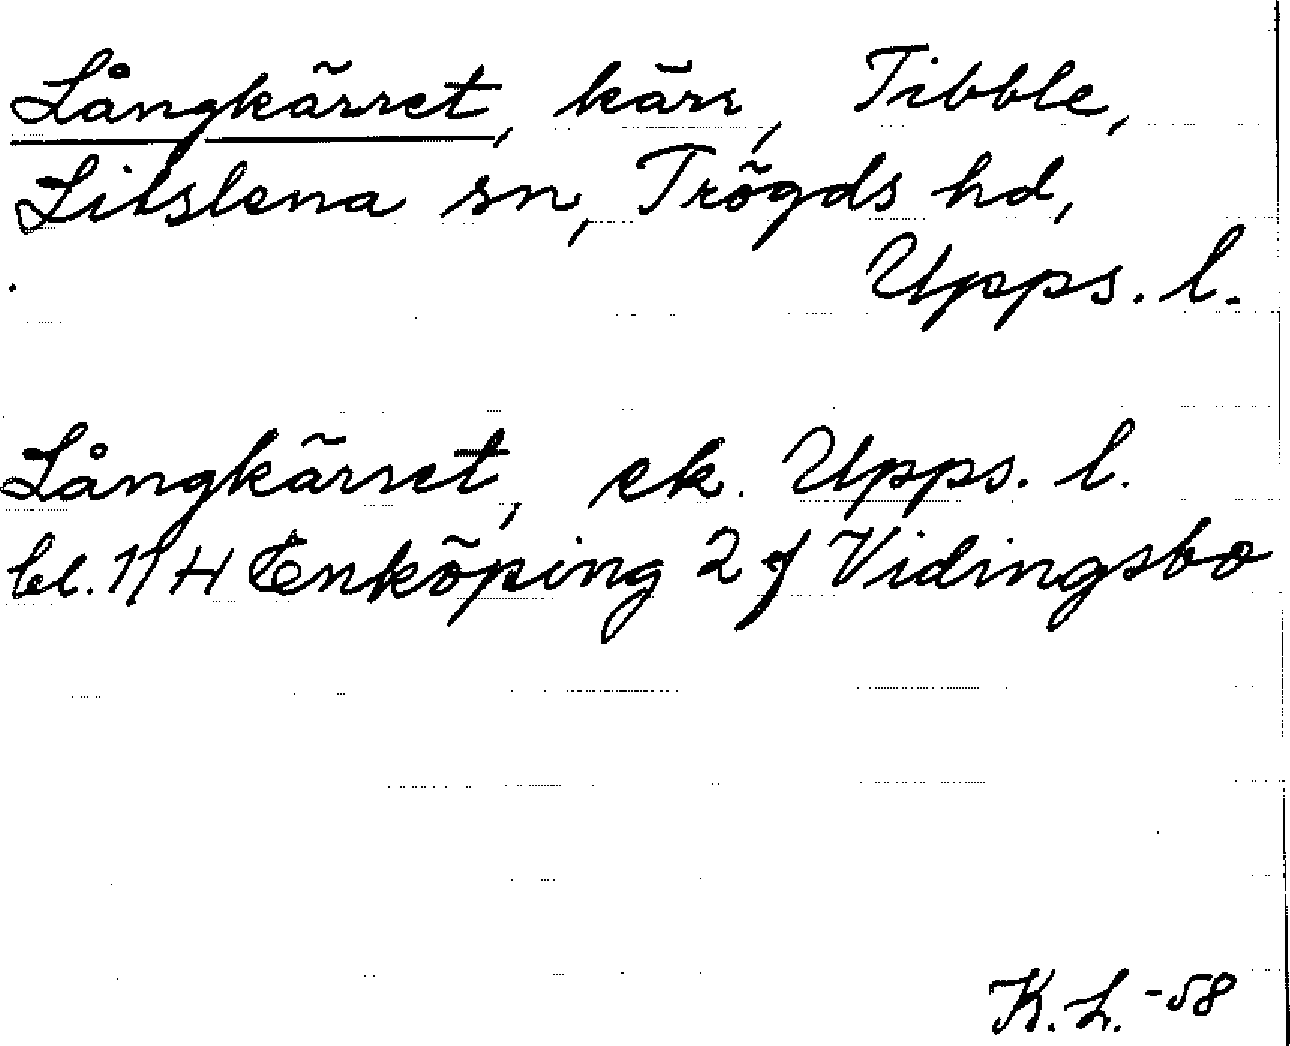 Långkärret, kärr, Tibble,
Litslena sn, Trögds hd,
Upps. l.
Långkärret, ek. Upps. l.
bl. 11 H Enköping 2 f Vidingsbo
K. L. -58